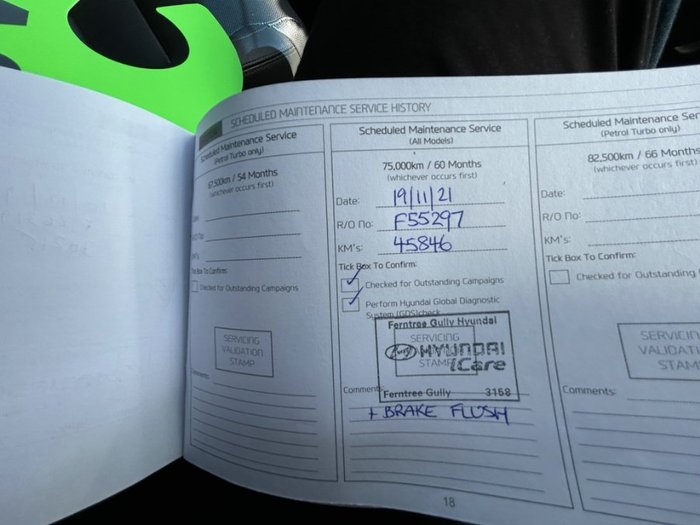 SCHEDULED MAINTENANCE SERVICE HISTORY
Scheduled Maintenance Service
(Petrol Turbo only)
67,500km / 54 Months
(whichever occurs first)
Date:
R/O No:
KM's:
Tick Box To Confirm:
Checked for Outstanding Campaigns
SERVICING
VALIDATION
STAMP
Comments:
Scheduled Maintenance Service
(All Models)
75,000km / 60 Months
(whichever occurs first)
Date: 19/11/21
R/O No: F55297
KM's: 45846
Tick Box To Confirm:
Checked for Outstanding Campaigns
Perform Hyundai Global Diagnostic
System (GDS) check
Ferntree Gully Hyundai
SERVICING
HYUNDAI
STAMP
iCare
Ferntree Gully 3158
Comments:
+ BRAKE FLUSH
Scheduled Maintenance Ser
(Petrol Turbo only)
82,500km / 66 Months
(whichever occurs first)
Date:
R/O No:
KM's:
Tick Box To Confirm:
Checked for Outstanding
SERVICIN
VALIDATI
STAM
Comments:
18